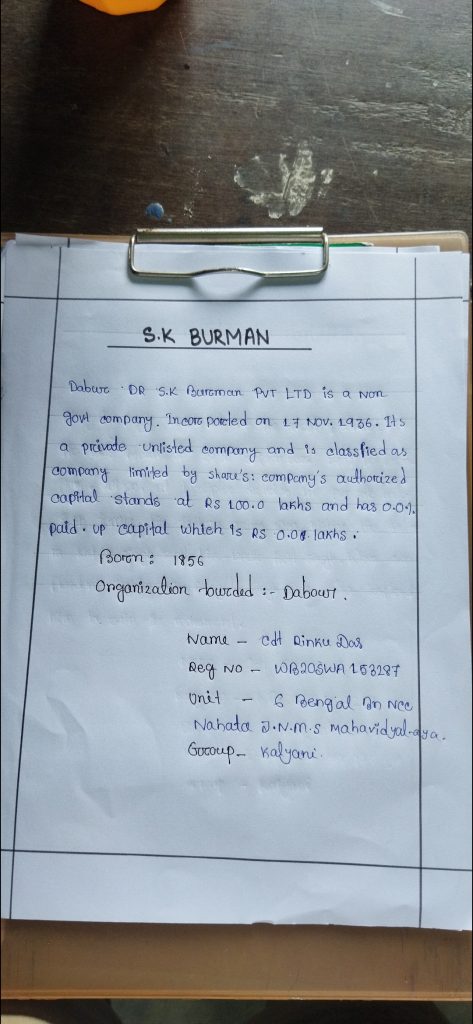 S.K BURMAN
Dabur DR S.K Burman PVT LTD is a Non
govt company. Incorporeted on 17 NOV. 1936. Its
a private unlisted company and is classfied as
company limited by share's: company's authorized
capital stands at RS 100.0 lakhs and has 0.0%.
paid. up capital which is RS 0.01 lakhs.
Born: 1856
Organization burded :- Dabour.
Name - cdt Rinku Das
Reg NO - WB20SWA 153287
Unit - 6 Bengal Bn Ncc
Nahata J.N.M.S Mahavidyal-aya.
Group - Kalyani.